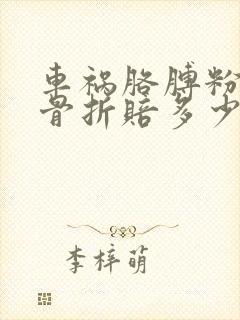 車祸胳膊粉
骨折赔多少
李梓萌